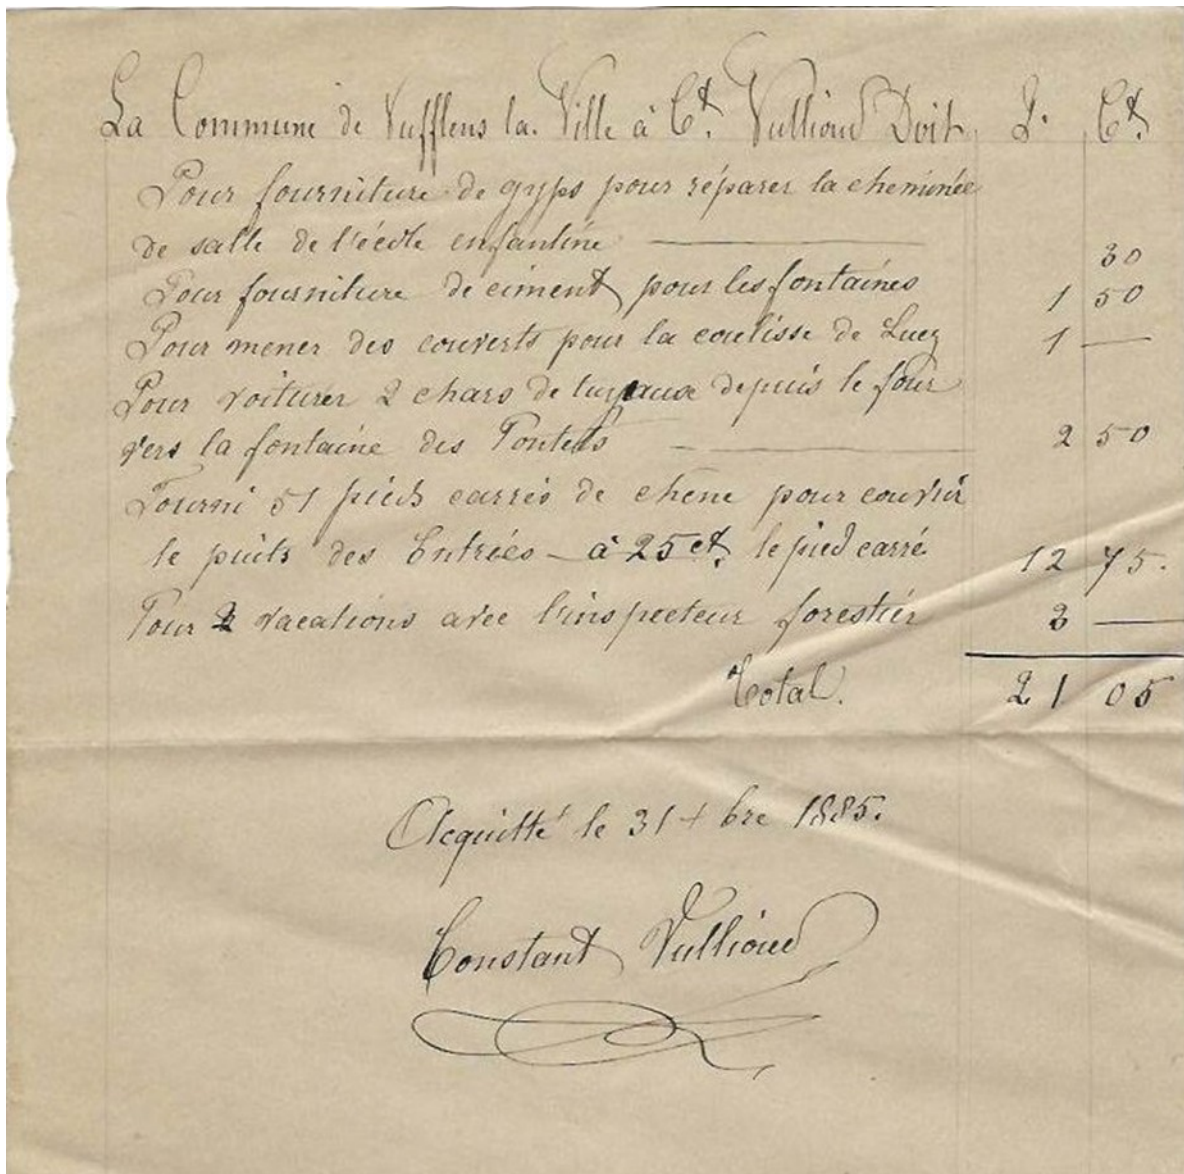 La Commune de Vufflens la. Ville à Ct. Vullioud Doit F. Ct.
Pour fourniture de gyps pour réparer la cheminée
de salle de l'école enfantine — 30
Pour fourniture de ciment pour les fontaines 1 50
Pour mener des couverts pour la coulisse de 1 —
Pour voiturer 2 chars de tuyaux depuis le four
vers la fontaine des Pontets — 2 50
Fourni 51 pieds carrés de chene pour couvrir
le puits des Entrées - à 25 ct. le pied carré 12 75.
Pour 2 vacations avec l'inspecteur forestier 3 —
Total. 21 05
Acquitté le 31 + bre 1885.
Constant Vullioud